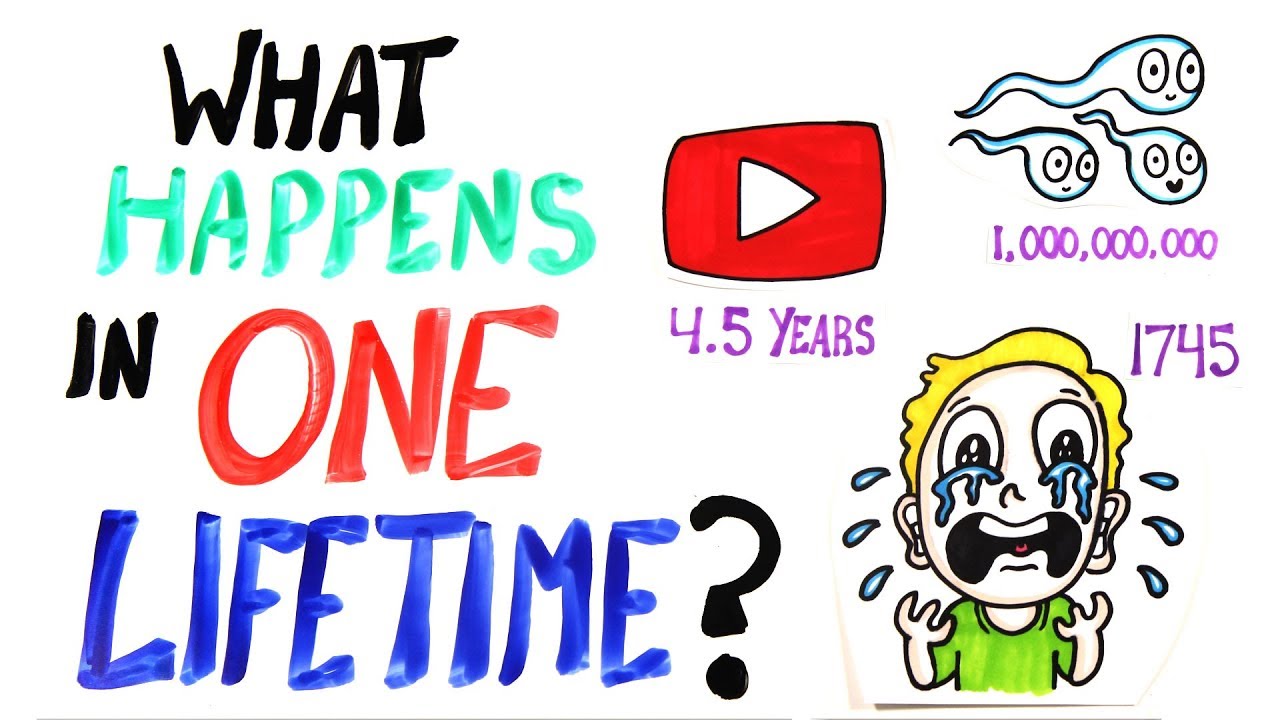 WHAT
HAPPENS
IN ONE
LIFETIME?
4.5 YEARS
1,000,000,000
1745